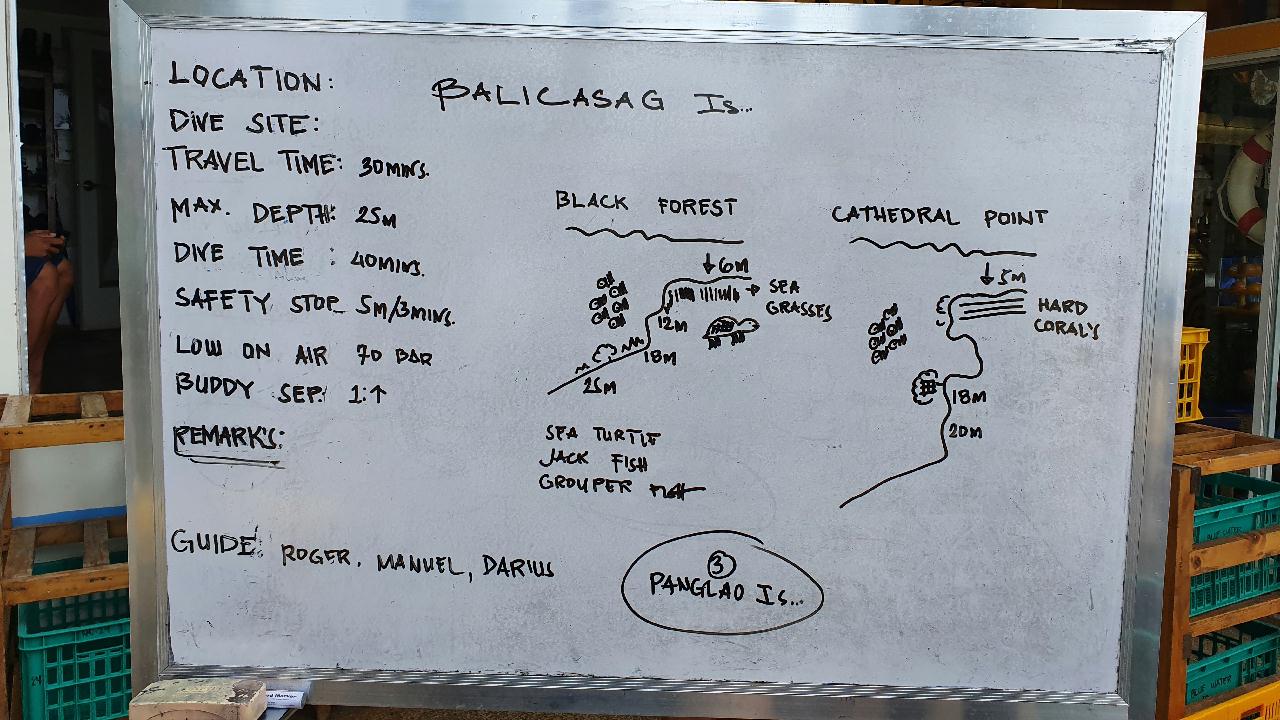 LOCATION: BALICASAG Is...
DIVE SITE:
TRAVEL TIME: 30MINS.
MAX. DEPTH: 25M
DIVE TIME : 40MINS.
SAFETY STOP 5M/3MINS.
LOW ON AIR 70 BAR
BUDDY SEP. 1:↑
REMARK'S:
BLACK FOREST
↓ 6M
→ SEA
GRASSES
12M
18M
25M
SEA TURTLE
JACK FISH
GROUPER FISH
CATHEDRAL POINT
↓ 5M
HARD
CORAL'S
18M
20M
GUIDE: ROGER, MANUEL, DARIUS
3
PANGLAO Is...
BLUE WATER
BLUE WATER